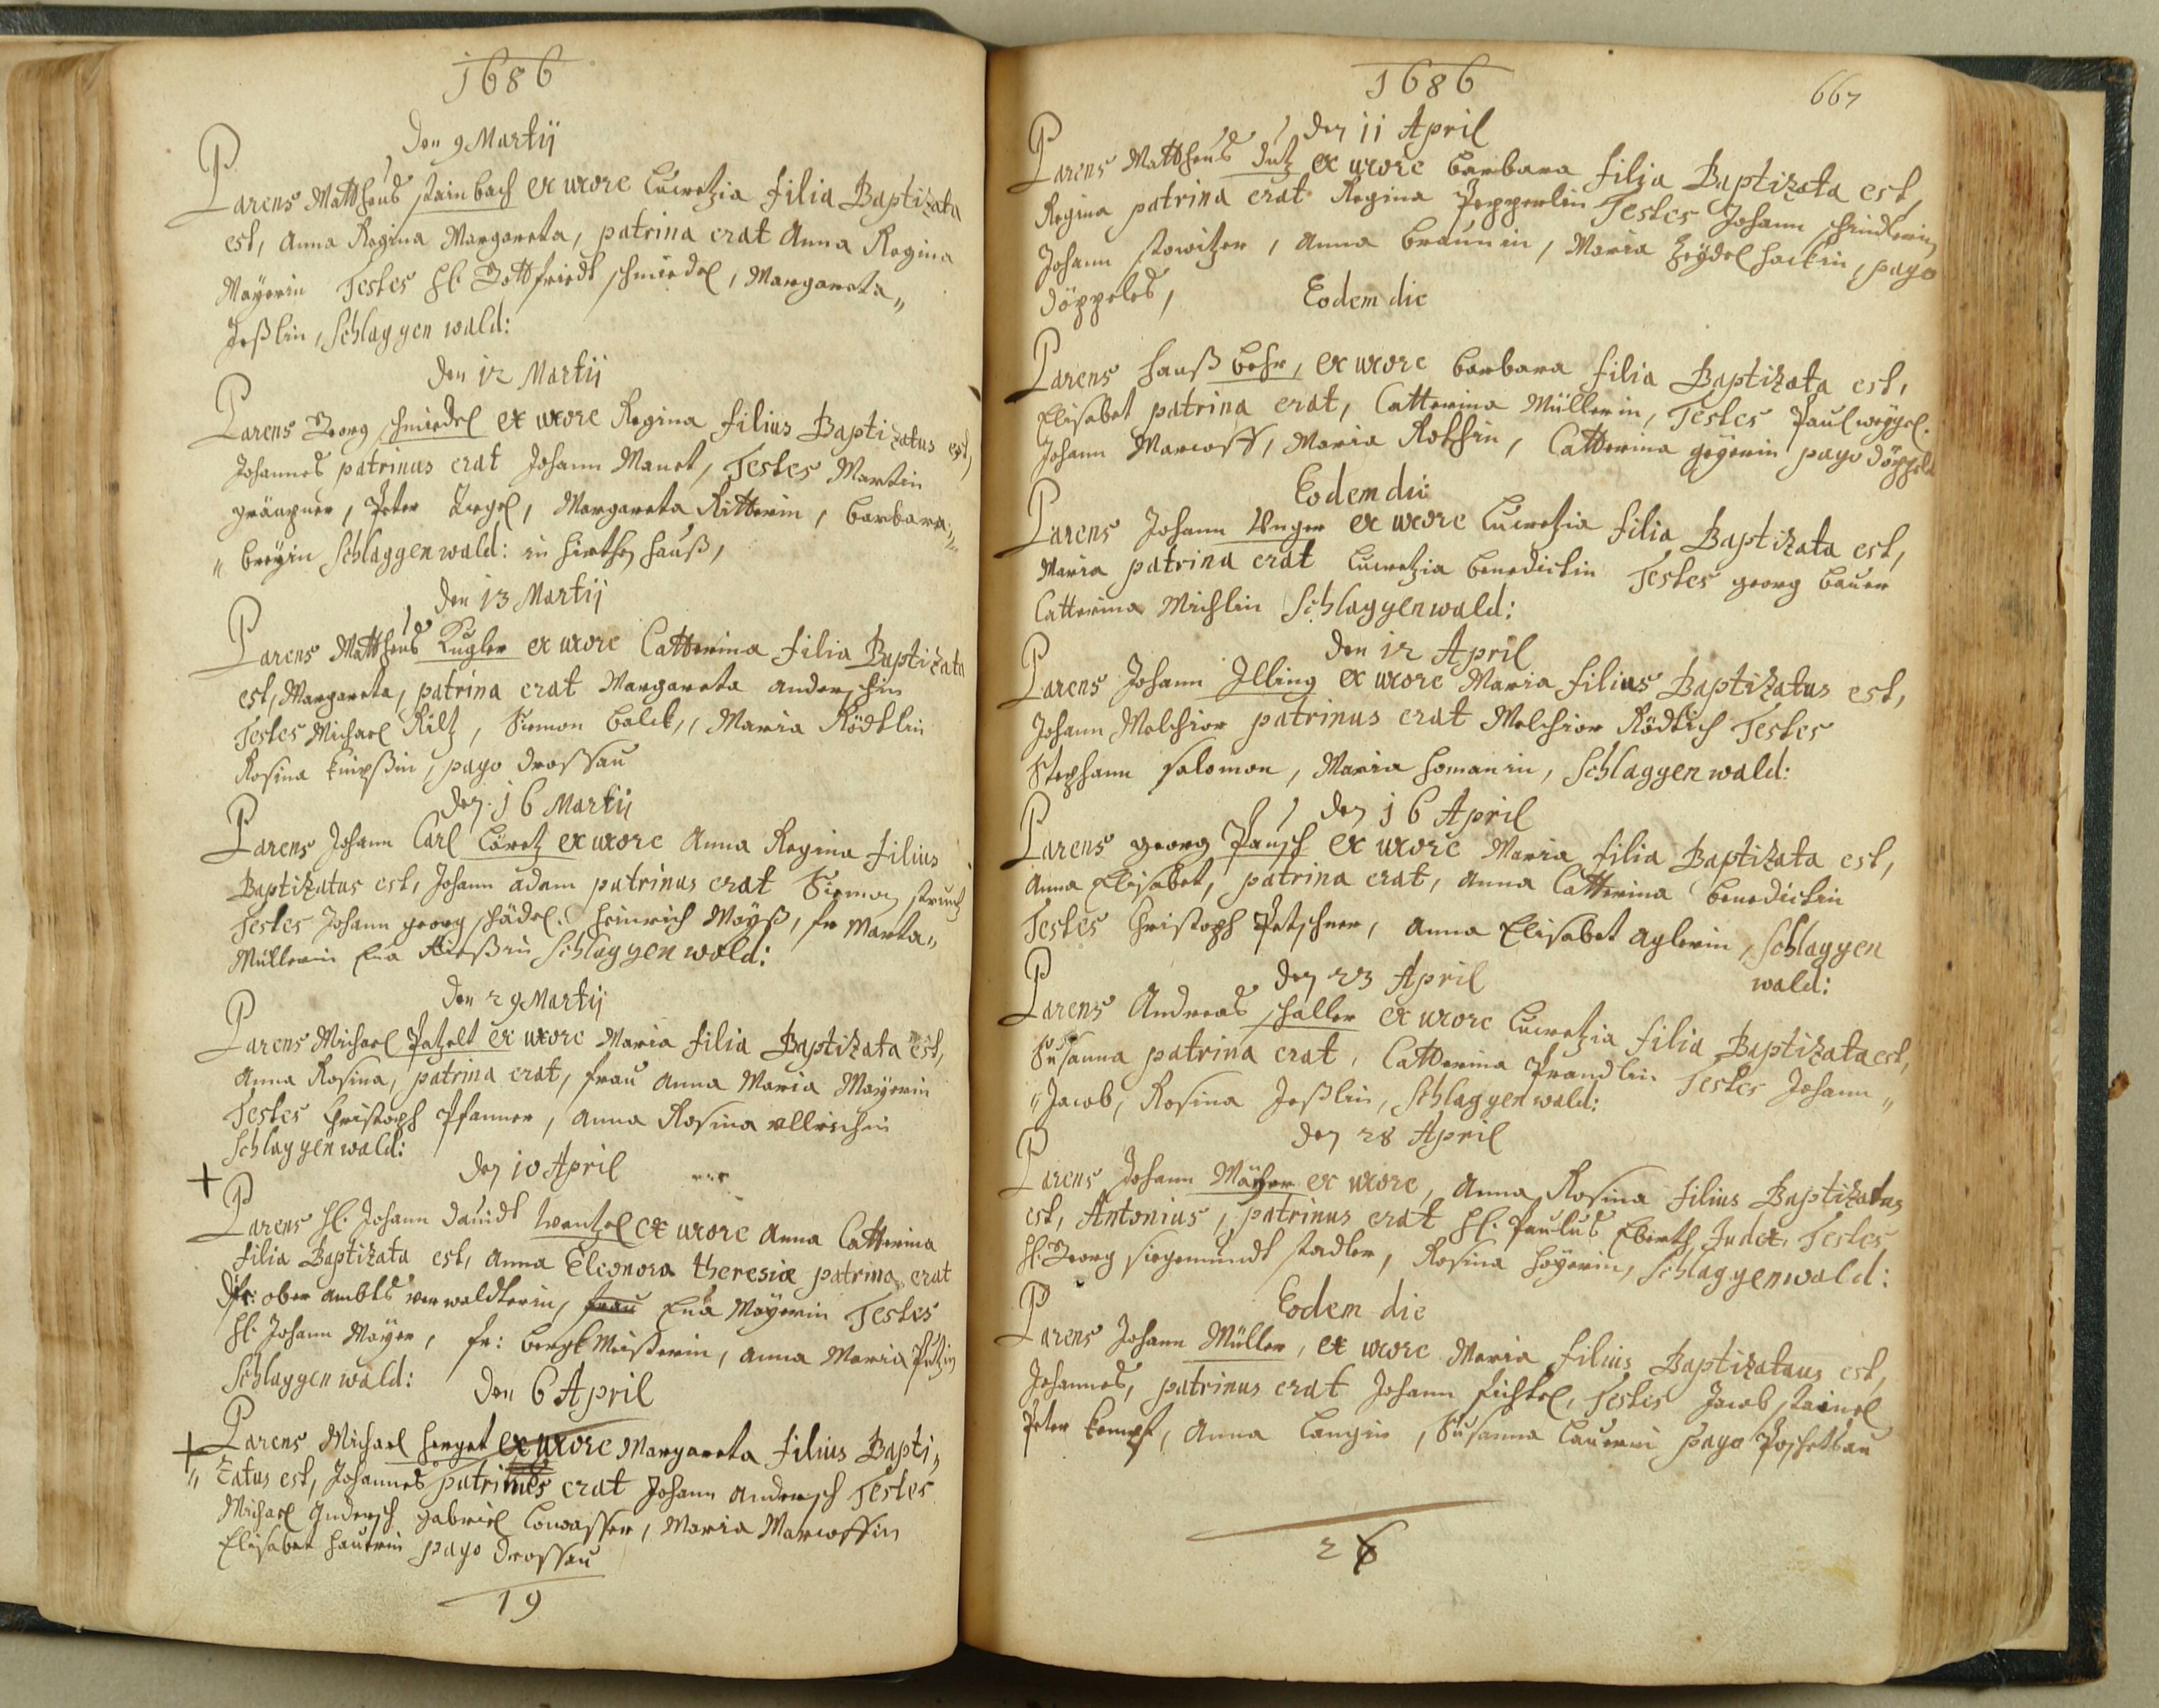 1686
Den 9 Martij
Parens Mattheus stainbach ex uxore Lucretzia filia Baptizata
est, Anna Regina Margareta, patrina erat Anna Regina
Mayerin Testes H: Gottfriedt schmiedel, Margareta„
Jeßlin, Schlaggenwald:
Den 12 Martij
Parens Georg schmiedel ex uxore Regina filius Baptizatus est,
Johannes patrinus erat Johann Manet, Testes Martin
Peter Margareta Ritterin, Barbara„
„ Schlaggenwald: in hirthen hauß,
Den 13 Martij
Parens Mattheus Kugler ex uxore Catterina filia Baptizata
est, Margareta, patrina erat Margareta anderschin
Testes Michael Kiltz, Siemon Balck, Maria Rödtlin
Rosina pago Drossau
Den 16 Martij
Parens Johann Carl Loretz ex uxore Anna Regina filius
Baptizatus est, Johann adam patrinus erat Siemon
Testes Johann georg schädel, Heinrich Mayß, fr Marta„
Müllerin Eua Kießin Schlaggenwald:
Den 29 Martij
Parens Michael Patzelt ex uxore Maria filia Baptizata est,
Anna Rosina, patrina erat, frau Anna Maria Mayerin
Testes Christoph Pfanner, Anna Rosina ullrichin
Schlaggenwald:
Den 10 April
Parens H: Johann Dauidt Wentzel ex uxore Anna Catterina
filia Baptizata est, Anna Eleonora theresia patrina erat
fr: ober ambts verwaldterin, frau Eua Mayerin Testes
H: Johann Mayer, fr: bergkmeisterin, Anna Maria
Schlaggenwald:
Den 6 April
Parens Michael Herget ex uxore Margareta filius Bapti„
„zatus est, Johannes patrinus erat Johann andersch Testes
Michael Andersch gabriel Lowasser, Maria Marcoffin
Elisabet pago Drossau
19
1686
667
Den 11 April
Parens Mattheus Dutz ex uxore Barbara filia Baptizata est,
Regina patrina erat Regina Pepperlin Testes Johann
Johann stowitzer, Anna Braunin, Maria pago
Döppeles,
Eodem die
Parens Hanß Behr, ex uxore Barbara filia Baptizata est,
Elisabet patrina erat, Catterina Müllerin, Testes Paul weggel.
Johann Marcoff, Maria Rothin, Catterina geyerin pago Döppeles
Eodem die
Parens Johann Unger ex uxore Lucretia filia Baptizata est,
Maria patrina erat Lucretzia benedictin Testes georg bauer
Catterina Michlin Schlaggenwald:
Den 12 April
Parens Johann Illing ex uxore Maria filius Baptizatus est,
Johann Melchior patrinus erat Melchior Rödtlich Testes
Stephann salomon, Maria Homanin, Schlaggenwald:
Den 16 April
Parens georg Pausch ex uxore Maria filia Baptizata est,
Anna Elisabet, patrina erat, Anna Catterina benedictin
Testes Christoph Petschner, Anna Elisabet aglerin, Schlaggen
wald:
Den 23 April
Parens Andreas schaller ex uxore Lucretzia filia Baptizata est,
Susanna patrina erat, Catterina Prandlin Testes Johann„
„Jacob, Rosina Jeßlin, Schlaggenwald:
Den 28 April
Parens Johann Mäyer ex uxore, Anna Rosina filius Baptizatus
est, Antonius, patrinus erat H: Paulus Eberth Judex, Testes
H: Georg siegemundt stadler, Rosina hoyerin, Schlaggenwald:
Eodem die
Parens Johann Müller, ex uxore Maria filius Baptizataus est,
Johannes, patrinus erat Johann fichtel, Testes Jacob stainel
Peter kempf, Anna Langin, Susanna Lauerin pago Poschetzau
26